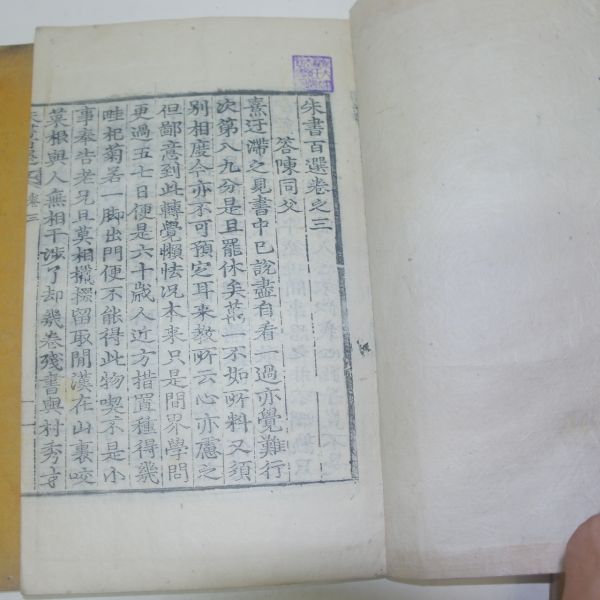 朱書百選卷之三
答陳同父
熹迂滯之見書中已說盡自看一過亦覺難行
次第八九分是且罷休矣萬一不如所料又須
別相度今亦不可預定耳来敎所云心亦慮之
但鄙意到此轉覺懶怯况本来只是間界學問
更過五七日便是六十歲人近方措置種得幾
畦杞菊若一脚出門便不能得此物喫不是小
事奉告老兄且莫相攛掇留取閒漢在山裏咬
菜根與人無相干涉了却幾卷殘書與村秀才